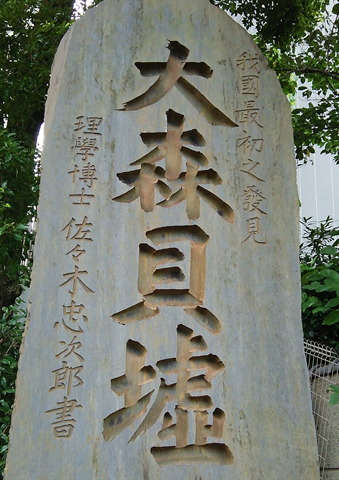 我國最初之發見
大森貝墟
理學博士佐々木忠次郎書